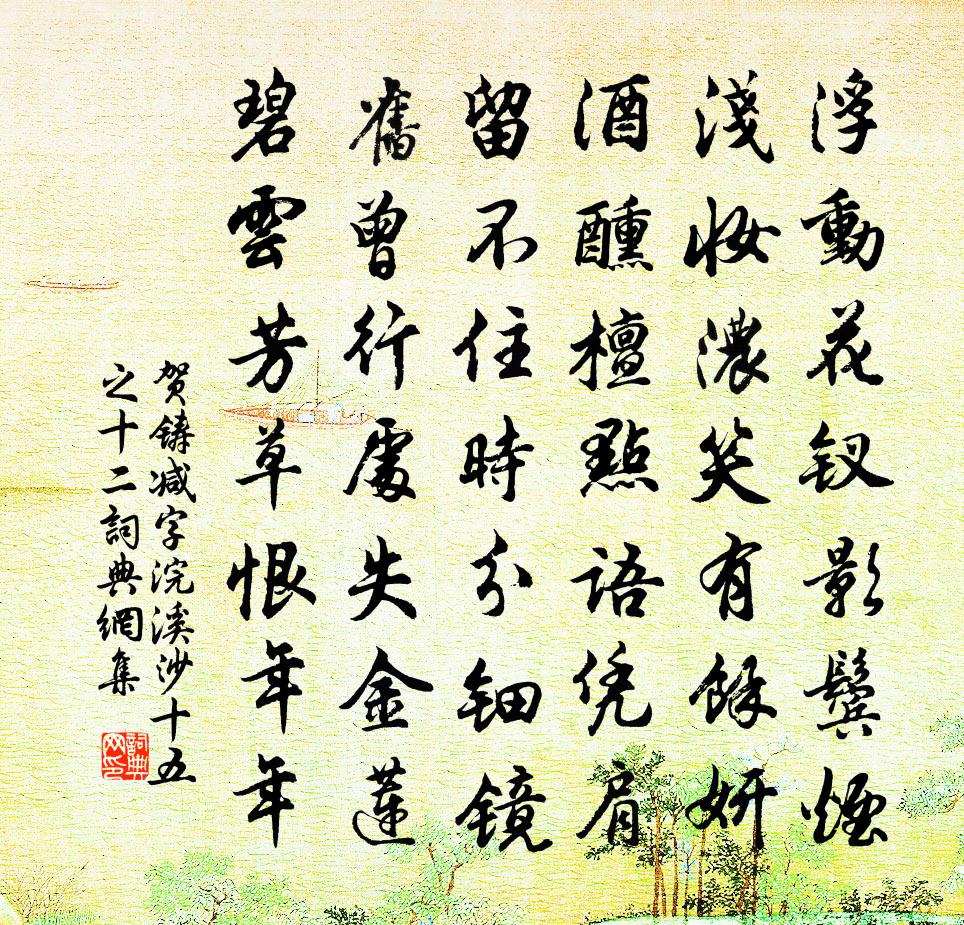 浮動花釵影鬢煙
淺妝濃笑有餘妍
酒醺檀點語凭肩
留不住時分鈿镜
舊曾行處失金蓮
碧雲芳草恨年年
贺鑄减字浣溪沙十五
之十二詞典網集
詞典网印